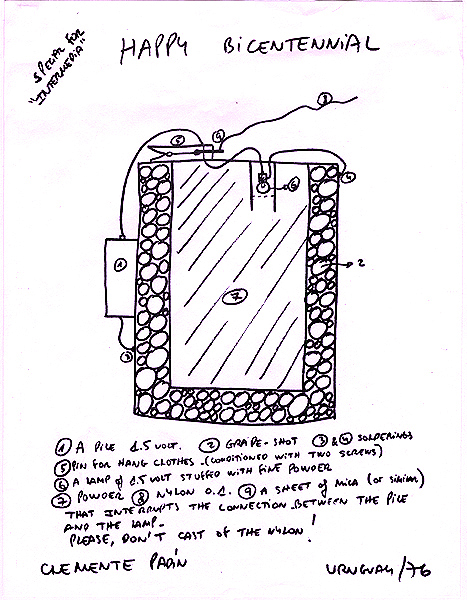 SPECIAL FOR
"INTERMEDIA"
HAPPY BICENTENNIAL
5
9
8
6
4
1
2
7
3
1 A PILE 1.5 VOLT. 2 GRAPE-SHOT 3 & 4 SOLDERINGS
5 PIN FOR HANG CLOTHES - (CONDITIONED WITH TWO SCREWS)
6 A LAMP OF 1.5 VOLT STUFFED WITH FINE POWDER
7 POWDER 8 NYLON 0.1. 9 A SHEET OF MICA (OR SIMILAR)
THAT INTERRUPTS THE CONNECTION BETWEEN THE PILE
AND THE LAMP-
PLEASE, DON'T CAST OF THE NYLON!
CLEMENTE PADÍN URUGUAY/76